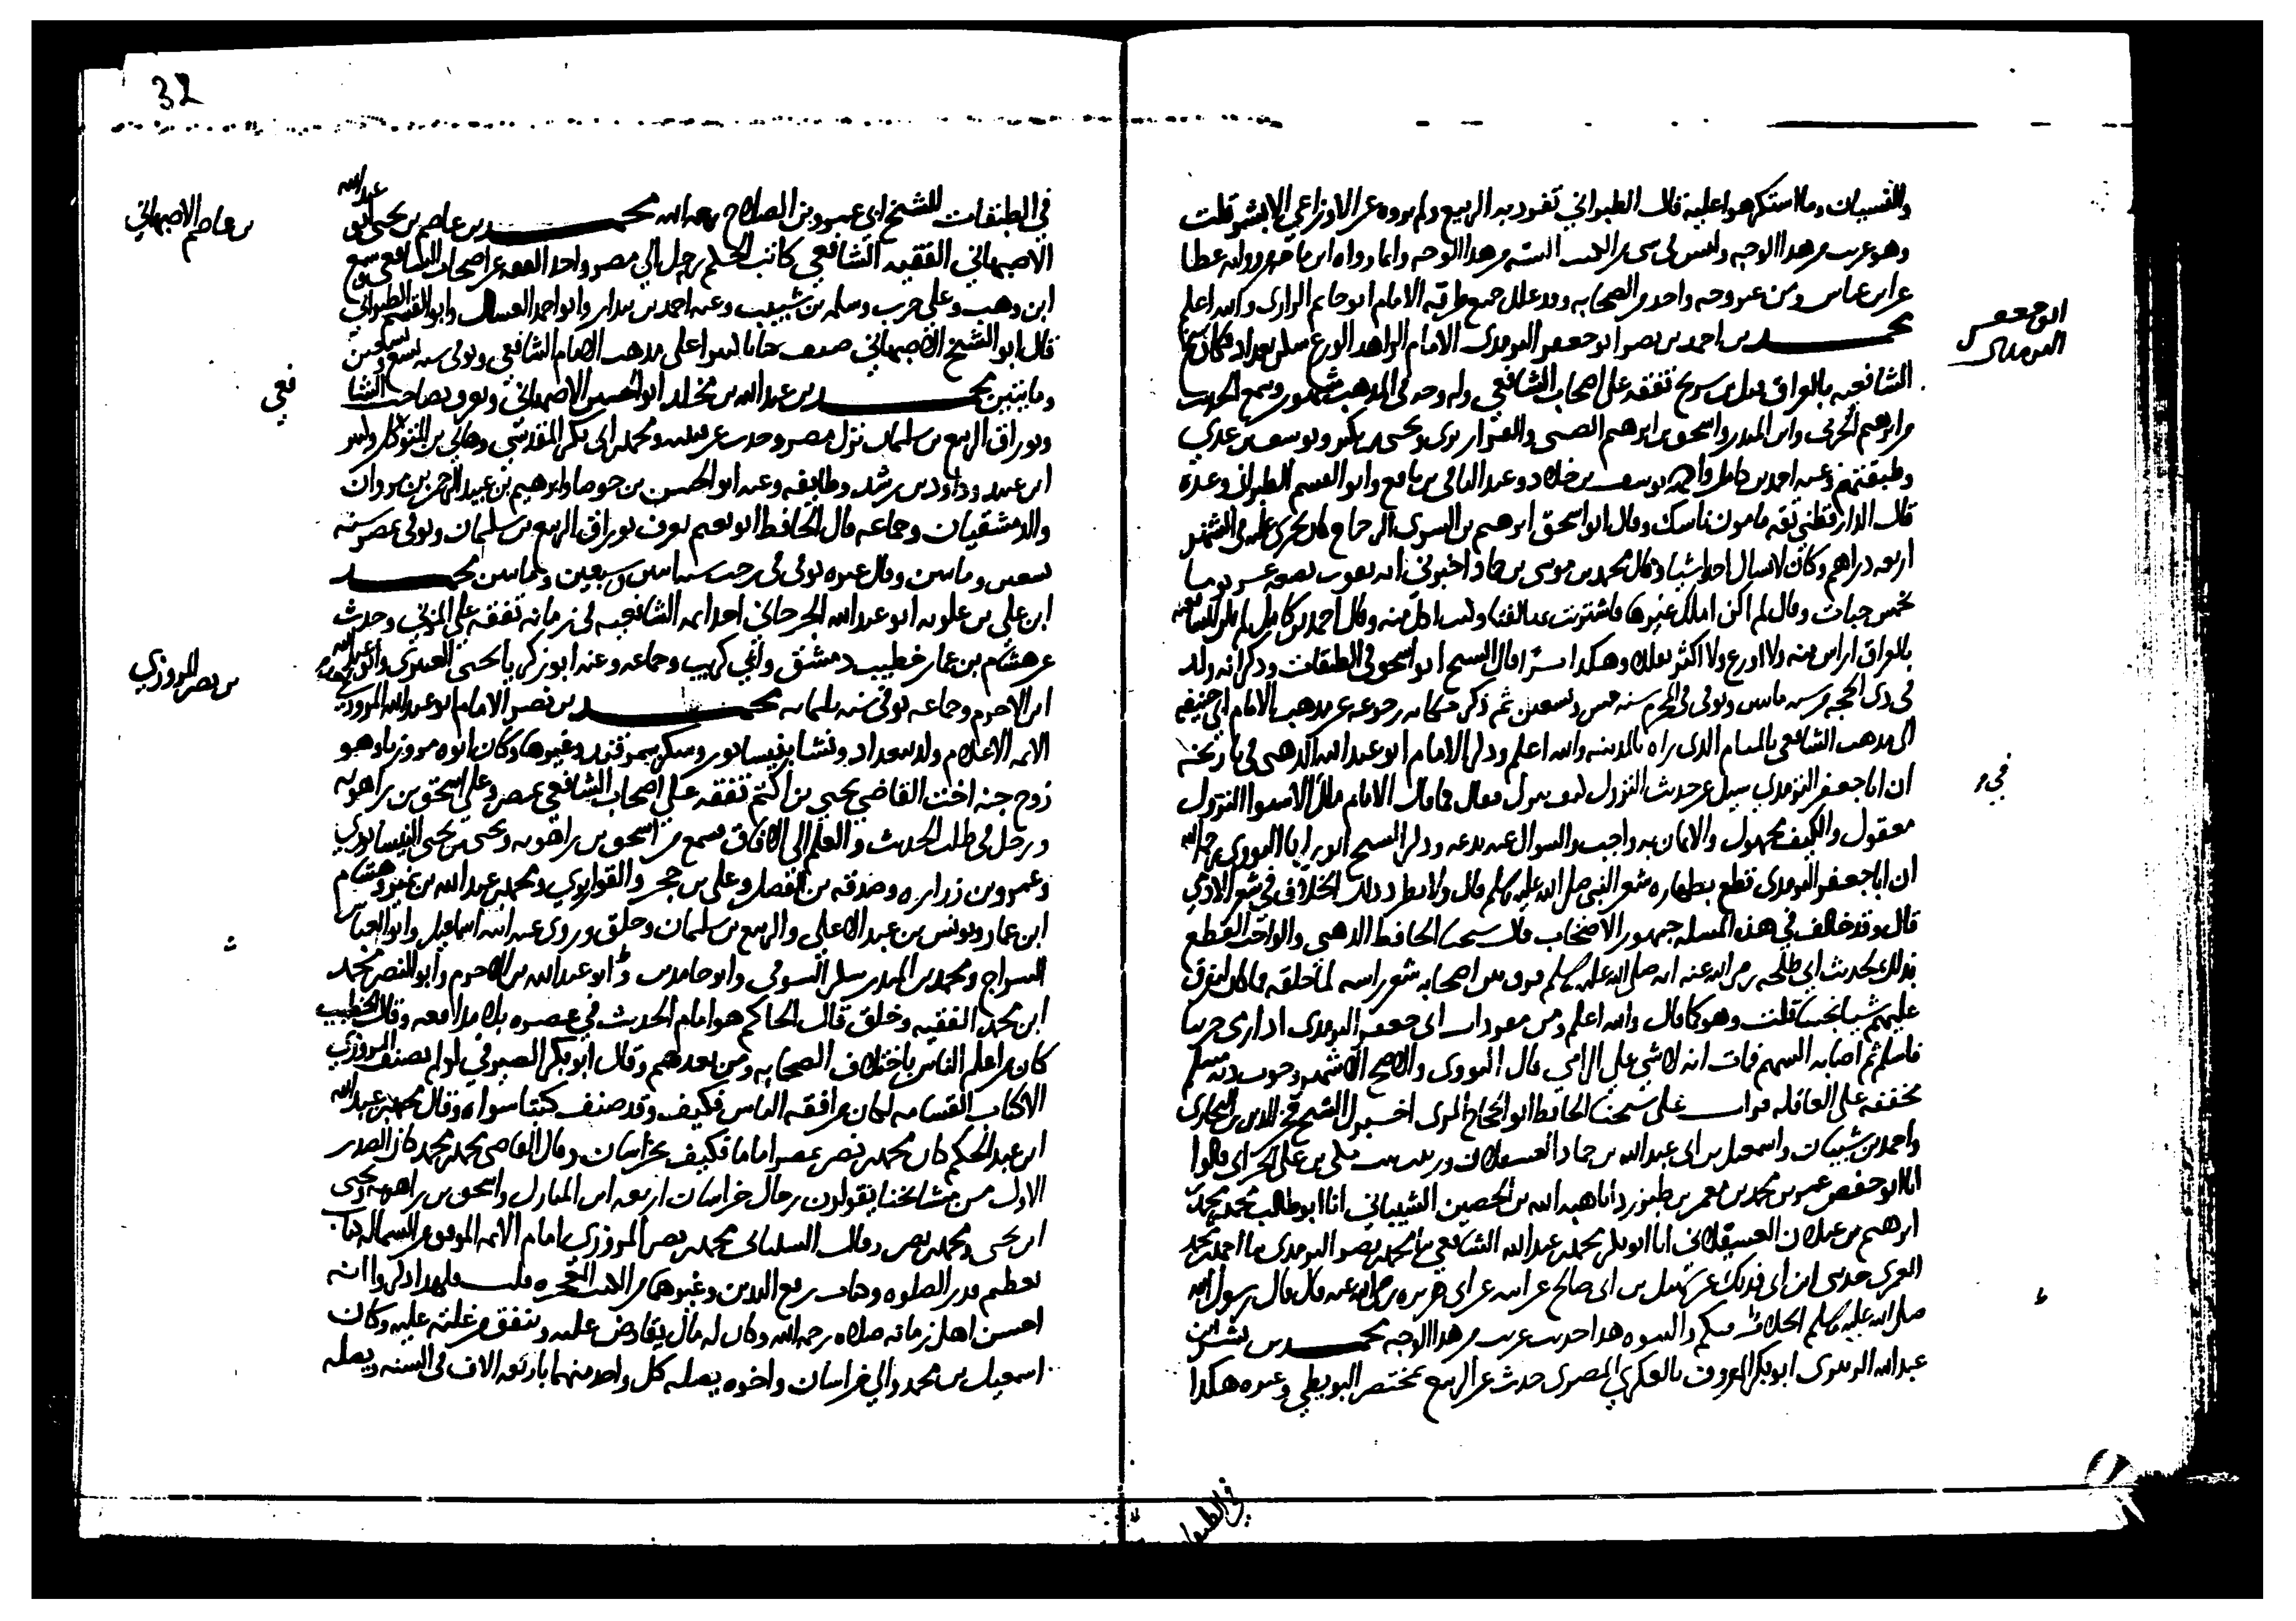 والنسيان وما استكرهوا عليه قال الطبراني تفرد به الربيع ولم يروه عن الاوزاعي الا بشر قلت
وهو غريب من هذا الوجه وليس في شي من الكتب الستة من هذا الوجه وانما رواه ابن ماجه من روايه عطا
عن ابن عباس ومن غير وجه واحد من الصحابه وقد علل جميع طرقه الامام ابو حاتم الرازي والله اعلم
محمد بن احمد بن نصر ابو جعفر الترمذي الامام الزاهد الورع سكن بغداد وكان شيخ
ابو جعفر
الترمذي
الشافعيه بالعراق قبل بن سريج تفقه على اصحاب الشافعي وله وجه في المذهب مشهور وسمع الحديث
من ابرهيم الحزامي وابن المنذر واسحق بن ابرهيم الصيني والقواريري ويحيى بن بكير ويوسف بن عدي
وطبقتهم وعنه احمد بن كامل واحمد بن يوسف بن خلاد وعبد الباقي بن قانع وابو القسم الطبراني وعدة
قال الدارقطني ثقه مامون ناسك وقال ابو اسحق ابرهيم بن السري الزجاج كان يجري عليه في الشهر
اربعه دراهم وكان لا يسال احدا شيا وقال محمد بن موسى بن حماد اخبرني انه تقوت بضعه عشر يوما
بخمس حبات وقال لم اكن املك غيرها فاشتريت بها لفتا وكنت اكل منه وقال احمد بن كامل لم يكن للشافعيه
بالعراق اراس منه ولا اورع ولا اكثر تقللا وهكذا قال الشيخ ابو اسحق في الطبقات وذكر انه ولد
في ذي الحجه سنه مايتين وتوفي في المحرم سنه خمس وتسعين ثم ذكر حكايه رجوعه عن مذهب الامام ابي حنيفه
الى مذهب الشافعي بالمنام الذي راه بالمدينه والله اعلم وذكر الامام ابو عبد الله الذهبي في تاريخه
ان ابا جعفر الترمذي سيل عن حديث النزول كيف ينزل فقال كما قال الامام مالك في الاستوا النزول
معقول والكيف مجهول والايمان به واجب والسوال عنه بدعه وذكر الشيخ ابو زكريا النووي رحمه الله
ان ابا جعفر الترمذي قطع بطهاره شعر النبي صلى الله عليه وسلم قال ولا يطرد ذلك الخلاف في شعر الادمي
قال وقد خالف في هذه المسله جمهور الاصحاب قال شيخنا الحافظ الذهبي والواجب القطع
بذلك لحديث ابي طلحه رضي الله عنه انه صلى الله عليه وسلم فرق بين اصحابه شعر راسه لما حلقه فما كان ليفرق
عليهم شيا نجسا قلت وهو كما قال والله اعلم ومن مفردات ابي جعفر الترمذي اذا رمى حربيا
فاسلم ثم اصابه السهم فمات انه لا شي على الرامي قال النووي والاصح الاشهر وجوب ديه مسلم
مخففه على العاقله قرات على شيخنا الحافظ ابو الحجاج المزي اخبرك الشيخ فخر الدين بن البخاري
واحمد بن شيبان واسمعيل بن ابي عبد الله بن حماد العسقلاني وزينب بنت مكي بن علي الحراني قالوا
انا ابو حفص عمر بن محمد بن معمر بن طبرزد انا هبه الله بن الحصين الشيباني انا ابو طالب محمد بن محمد
ابرهيم بن غيلان انا ابو بكر محمد بن عبد الله الشافعي ثنا محمد بن نصر الترمذي ثنا احمد بن محمد
حدثني ابن ابي فديك عن سهيل بن ابي صالح عن ابيه عن ابي هريره رضي الله عنه قال قال رسول الله
صلى الله عليه وسلم الخلافه فيكم والنبوه هذا حديث غريب من هذا الوجه محمد بن بشر بن
عبد الله الزبيري ابو بكر المعروف بالعكري المصري حدث عن الربيع بمختصر البويطي وغيره هكذا
في الطبقات
32
في الطبقات للشيخ ابي عمرو بن الصلاح رحمه الله محمد بن عاصم بن يحيى ابو عبد الله
بن عاصم الاصبهاني
الاصبهاني الفقيه الشافعي كاتب الحكم رحل الى مصر واخذ الفقه عن اصحاب الشافعي وسمع
ابن وهب وعلي بن حرب وسلمه بن شبيب وعنه احمد بن بندار وابو احمد العسال وابو القسم الطبراني
قال ابو الشيخ الاصبهاني صنف كتابا كثيرا على مذهب الامام الشافعي وتوفي سنه تسع وتسعين
ومايتين محمد بن عبد الله بن مخلد ابو الحسين الاصبهاني ويعرف بصاحب الشافعي
وبوراق الربيع بن سليمان نزل مصر وحدث عن قتيبه ومحمد بن ابي بكر المقدمي وهاني بن المتوكل وكثير
ابن عبيد وداود بن رشيد وطايفه وعنه ابو الحسن بن جوصا وابرهيم بن عبد الرحمن بن مروان
والدمشقيان وجماعه قال الحافظ ابو نعيم يعرف بوراق الربيع بن سليمان وتوفي بمصر سنه
تسعين ومايتين وقال غيره توفي في رجب سنه اثنين وسبعين ومايتين محمد
ابن علي بن علويه ابو عبد الله الجرجاني احد ايمه الشافعيه في زمانه تفقه على المزني وحدث
عن هشام بن عمار خطيب دمشق وابي كريب وجماعه وعنه ابو زكريا يحيى العنبري وابو عبد الله
ابن الاخرم وجماعه توفي سنه ثلثمايه محمد بن نصر الامام ابو عبد الله المروزي
بن نصر المروزي
الايمه الاعلام ولد ببغداد ونشا بنيسابور وسكن بسمرقند وغيرها وكان ابوه مروزيا وهو
زوج خنه اخت القاضي يحيى بن اكثم تفقه على اصحاب الشافعي بمصر وعلى اسحق بن راهويه
ورحل في طلب الحديث والعلم الى الافاق سمع من اسحق بن راهويه ويحيى بن يحيى النيسابوري
وعمرو بن زراره وصدقه بن الفضل وعلي بن حجر والقواريري ومحمد بن عبد الله بن نمير وهشام
ابن عمار ويونس بن عبد الاعلى والربيع بن سليمان وخلق وروى عنه ابنه اسماعيل وابو العباس
السراج ومحمد بن المنذر شكر وابو حامد بن الشرقي وابو عبد الله بن الاخرم وابو النضر محمد
ابن محمد الفقيه وخلق قال الحاكم هو امام الحديث في عصره بلا مدافعه وقال الخطيب
كان من اعلم الناس باختلاف الصحابه ومن بعدهم وقال ابو بكر الصيرفي لو لم يصنف المروزي
الا كتاب القسامه لكان من افقه الناس فكيف وقد صنف كتبا سواه وقال محمد بن عبد الله
ابن عبد الحكم كان محمد بن نصر بمصر اماما فكيف بخراسان وقال القاضي محمد بن محمد كان الصدر
الاول من مشايخنا يقولون رجال خراسان اربعه ابن المبارك واسحق بن راهويه ويحيى
ابن يحيى ومحمد بن نصر وقال السليماني محمد بن نصر المروزي امام الايمه الموفق من السما له كتاب
تعظيم قدر الصلوه وكتاب رفع اليدين وغيرهما من الكتب المعجزه قلت ولهذا ذكروا انه
احسن اهل زمانه صلاه رحمه الله وكان له مال يقارض عليه وينفق من غلته عليه وكان
اسمعيل بن محمد والي خراسان واخوه يصله كل واحد منهما باربعه الاف في السنه ويصله